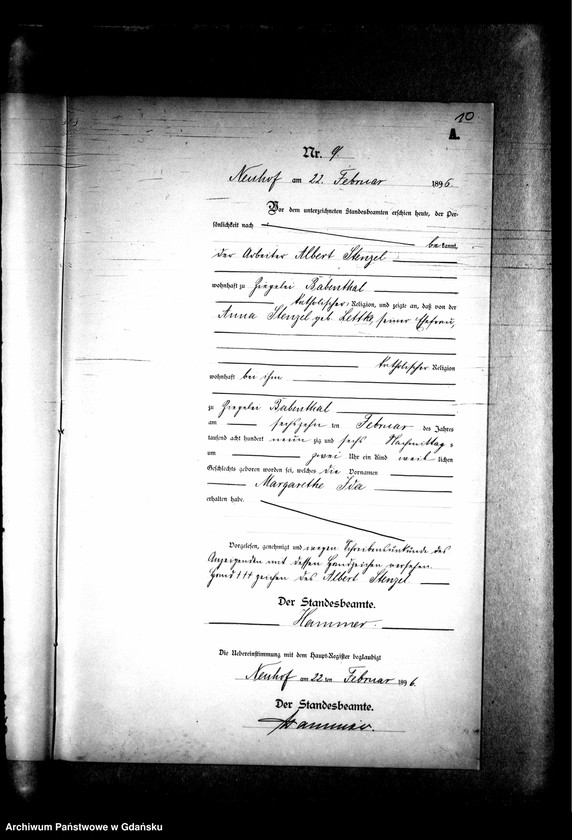 10
A.
Nr. 9.
Neuhof am 22. Februar 1896.
Vor dem unterzeichneten Standesbeamten erschien heute, der Per-
sönlichkeit nach
bekannt,
der Arbeiter Albert Stenzel
wohnhaft zu Ziegelei Babenthal
katholischer Religion, und zeigte an, daß von der
Anna Stenzel geb. Lettke, seiner Ehefrau,
katholischer Religion
wohnhaft bei ihm
zu Ziegelei Babenthal
am sechszehn ten Februar des Jahres
tausend acht hundert neun zig und sechs Nachmittags
um zwei Uhr ein Kind weib lichen
Geschlechts geboren worden sei, welches die Vornamen
Margarethe Ida
erhalten habe.
Vorgelesen, genehmigt und wegen Schreibensunkunde des
Anzeigenden mit dessen Handzeichen versehen.
Hand ††† zeichen des Albert Stenzel
Der Standesbeamte.
Hammer.
Die Uebereinstimmung mit dem Haupt-Register beglaubigt
Neuhof am 22 ten Februar 1896.
Der Standesbeamte.
Hammer.
Archiwum Państwowe w Gdańsku